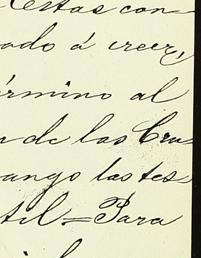 estas con
ado á creer,
érmino al
de las Cru
ango las tes
til = Para